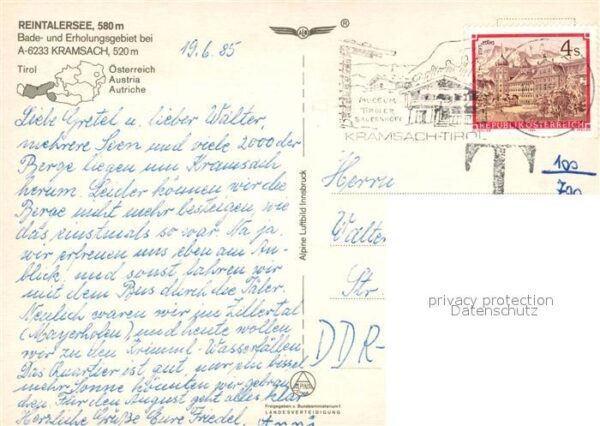 REINTALERSEE, 580 m
Bade- und Erholungsgebiet bei
A-6233 KRAMSACH, 520 m
Tirol
Österreich
Austria
Autriche
®
19.6.85
Liebe Gretel u. lieber Walter,
mehrere Seen und viele 2000der
Berge liegen um Kramsach
herum. Leider können wir die
Berge nicht mehr besteigen, wie
das einstmals so war. Na ja,
wir erfreuen uns eben am An-
blick, und sonst fahren wir
mit dem Bus durch die Täler.
Neulich waren wir im Zillertal
(Mayerhofen), und heute wollen
wir zu den Krimml-Wasserfällen.
Das Quartier ist gut, nur ein bissel
mehr Sonne könnten wir gebrau-
chen. Für den August geht alles klar
Herzliche Grüße Eure Friedel
Alpine Luftbild Innsbruck
MUSEUM
TIROLER
BAUERNHÖFE
KRAMSACH-TIROL
4 S
REPUBLIK ÖSTERREICH
T
100
Herrn
Walter
Str.
DDR-
privacy protection
Datenschutz
ALPINE
Freigegeben v. Bundesministerium f.
LANDESVERTEIDIGUNG